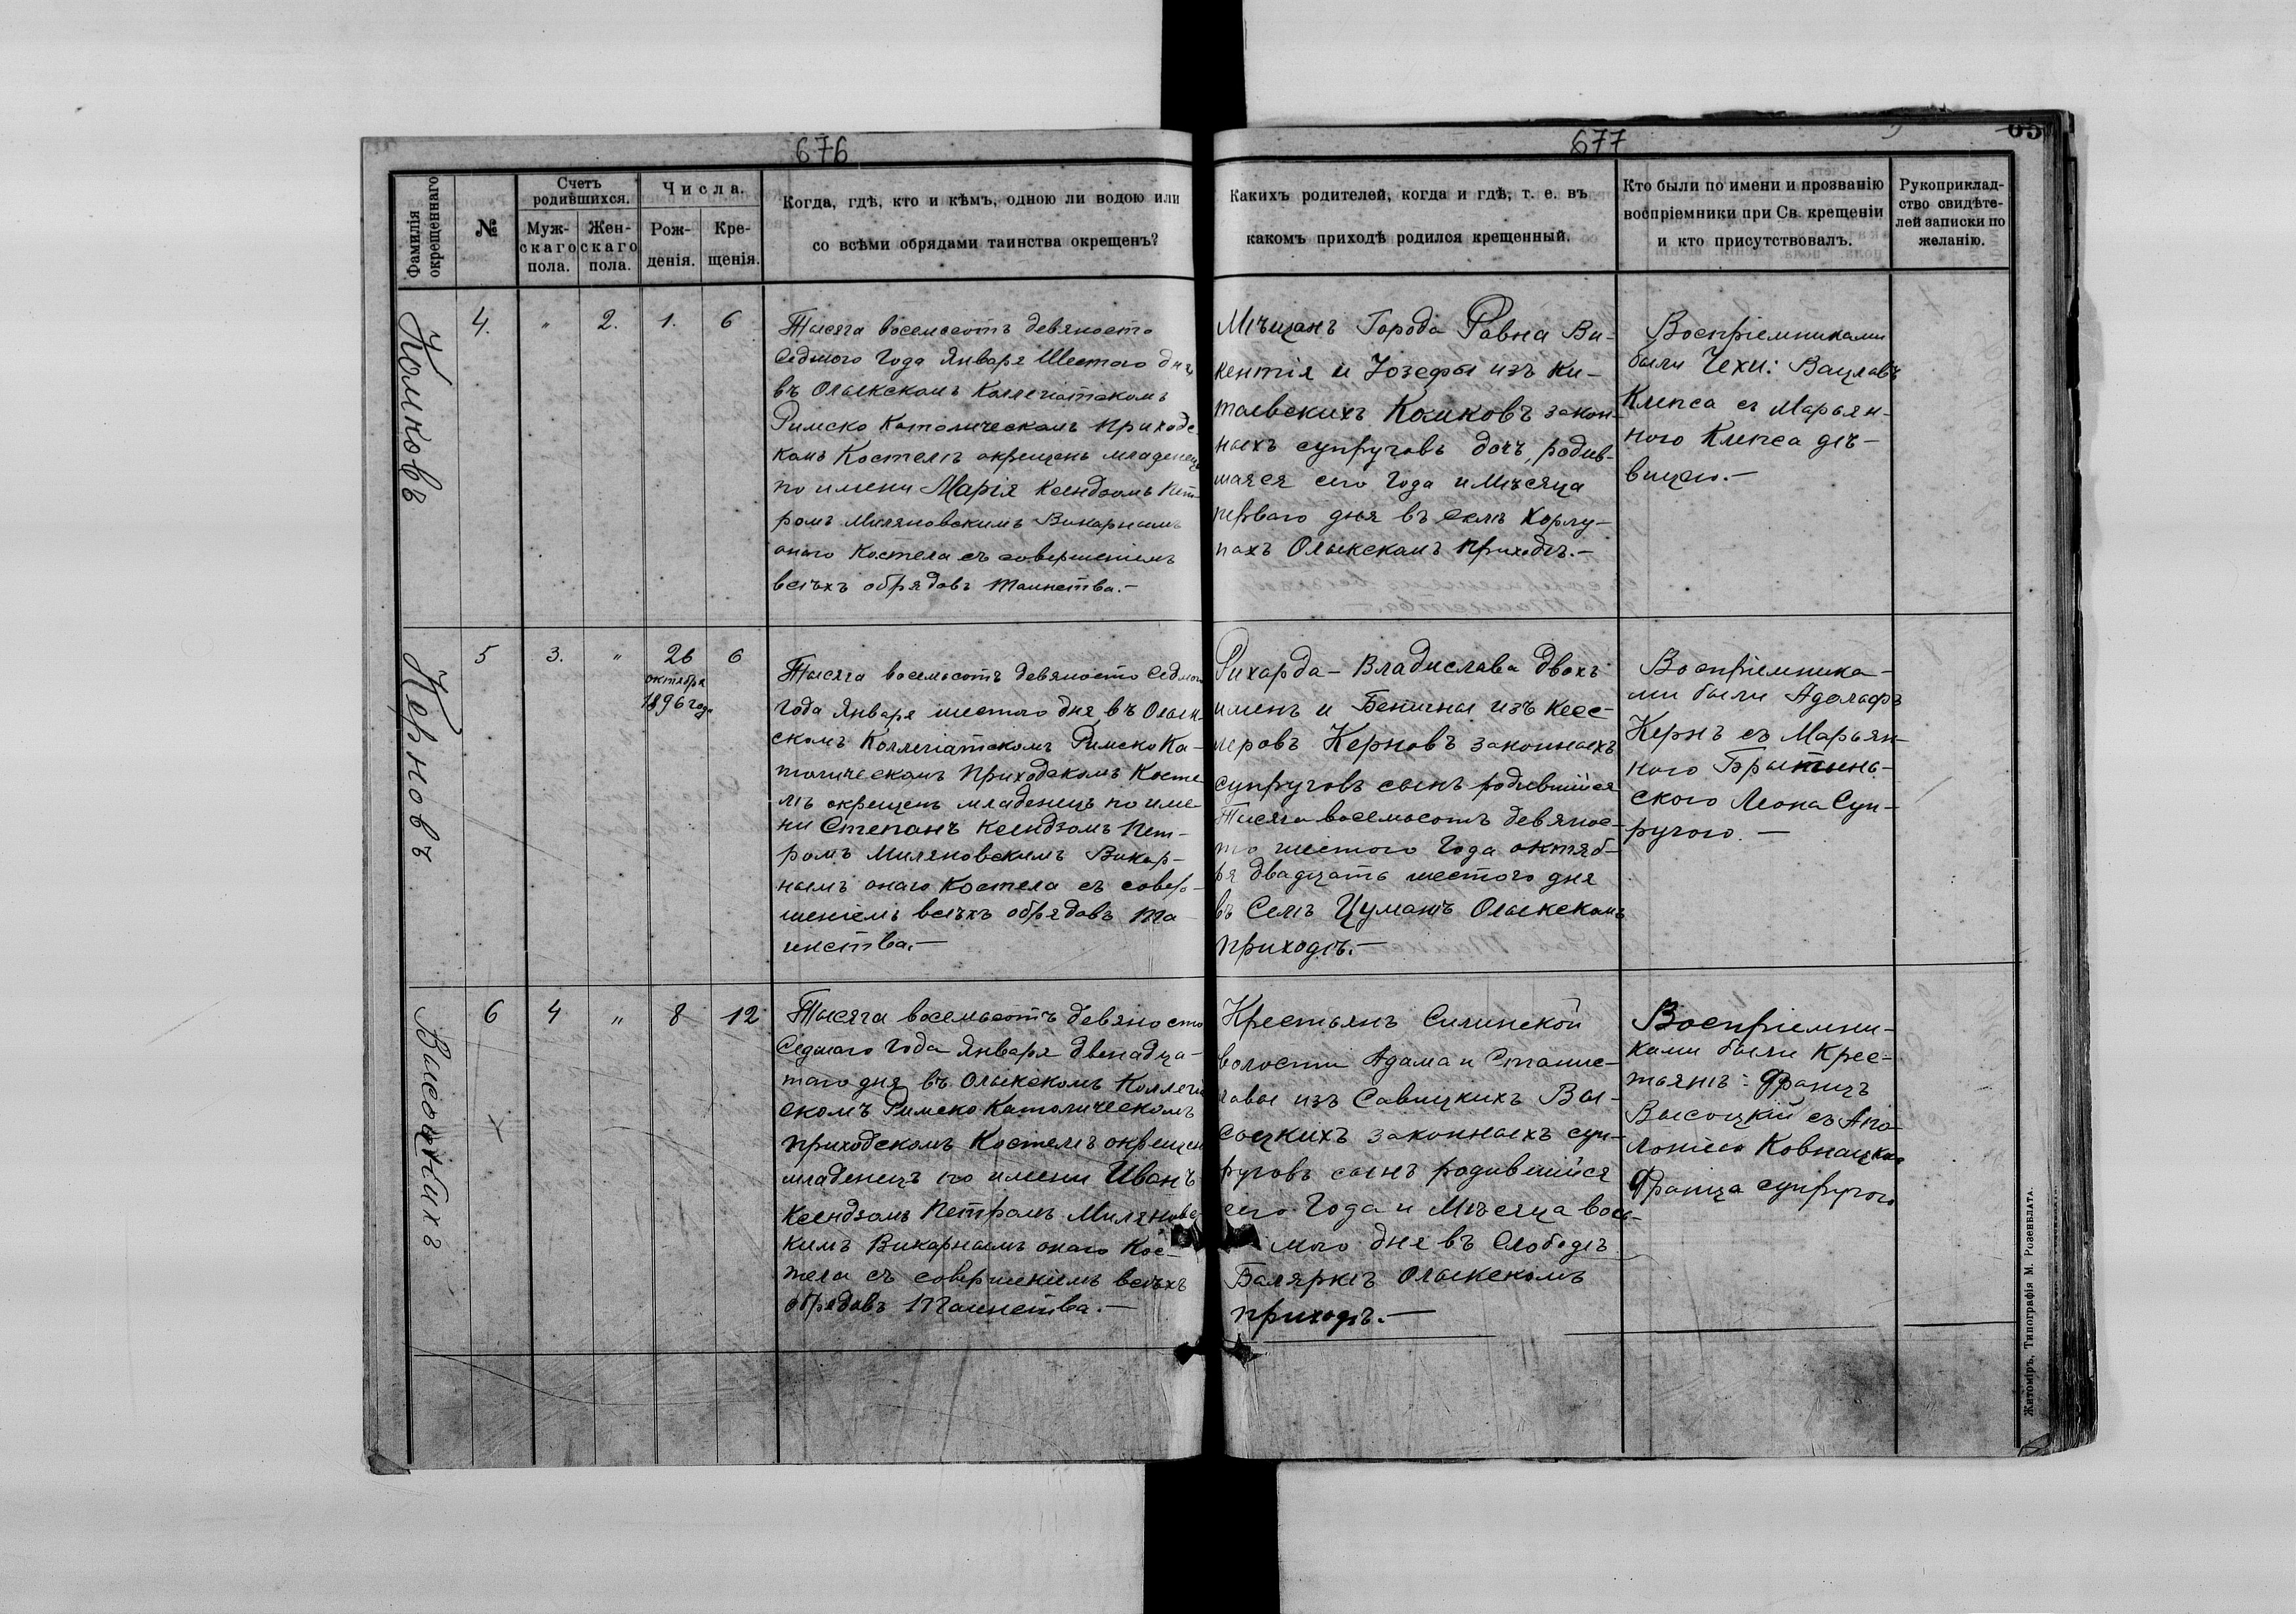 676
677
65
Фамилія
окрещеннаго
№
Счетъ
родившихся.
Муж-
скаго
пола.
Жен-
скаго
пола.
Числа.
Рож-
денія.
Кре-
щенія.
Когда, гдѣ, кто и кѣмъ, одною ли водою или
со всѣми обрядами таинства окрещенъ?
Какихъ родителей, когда и гдѣ, т. е. въ
какомъ приходѣ родился крещенный.
Кто были по имени и прозванію
воспріемники при Св. крещеніи
и кто присутствовалъ.
Рукоприклад-
ство свидѣте-
лей записки по
желанію.
Комковъ
4.
"
2.
1.
6
Тысяча восемьсотъ девяносто
Седмого Года Января Шестого дня
въ Олыкскомъ Коллегіатскомъ
Римско Католическомъ Приходс
комъ Костелѣ окрещенъ младенецъ
по имени Марія Ксендзомъ Пет-
ромъ Миляновскимъ Викарнымъ
онаго Костела съ совершеніемъ
всѣхъ обрядовъ Таинства.-
Мѣщанъ Города Ровна Ви-
кентія и Іозефы изъ Ки-
таевскихъ Комковъ закон-
ныхъ супруговъ дочь, родив-
шаяся сего Года и Мѣсяца
перваго дня въ Селѣ Хорлу-
пахъ Олыкскомъ Приходѣ.-
Воспріемниками
были Чехи: Вацлавъ
Клепса съ Марьян-
ною Клепса дѣ-
вицею.-
Керновъ
5
3.
"
26
октября
1896 года
6
Тысяча восемьсотъ девяносто Седмого
Года Января шестого дня въ Олык-
скомъ Коллегіатскомъ Римско Ка-
толическомъ Приходскомъ Косте
лѣ окрещенъ младенецъ по име-
ни Степанъ Ксендзомъ Пет-
ромъ Миляновскимъ Викар-
нымъ онаго Костела съ совер-
шеніемъ всѣхъ обрядовъ Та-
инства.-
Рихарда-Владислава двохъ
именъ и Бенигны изъ Кесс-
леровъ Керновъ законныхъ
супруговъ сынъ родившійся
Тысяча восемьсотъ девянос-
то шестого Года октяб-
ря двадцать шестого дня
въ Селѣ Цуманѣ Олыкскомъ
приходѣ.-
Воспріемника-
ми были Адольфъ
Кернъ съ Марьян-
ною
Леона Суп-
ругою.-
Высоцкихъ
6
4
"
8
12
Тысяча восемьсотъ девяносто
Седмаго Года Января двенадца-
того дня въ Олыкскомъ Коллегіа
скомъ Римско Католическомъ
приходскомъ Костелѣ окрещенъ
младенецъ по имени Иванъ
Ксендзомъ Петромъ Миляновс
кимъ Викарнымъ онаго Кос-
тела съ совершеніемъ всѣхъ
обрядовъ Таинства.-
Крестьянъ Силинской
волости Адама и Станис-
лавы изъ Савицкихъ Вы-
соцкихъ законныхъ суп-
руговъ сынъ родившійся
сего Года и Мѣсяца вось-
мого дня въ Слободѣ
Баляркѣ Олыкскомъ
приходѣ.-
Воспріемни-
ками были Крес-
тьянѣ: Францъ
Высоцкій съ Апо-
лоніею Ковнацкою
Франца супругою
Житоміръ, Типографія М. Розенблата.